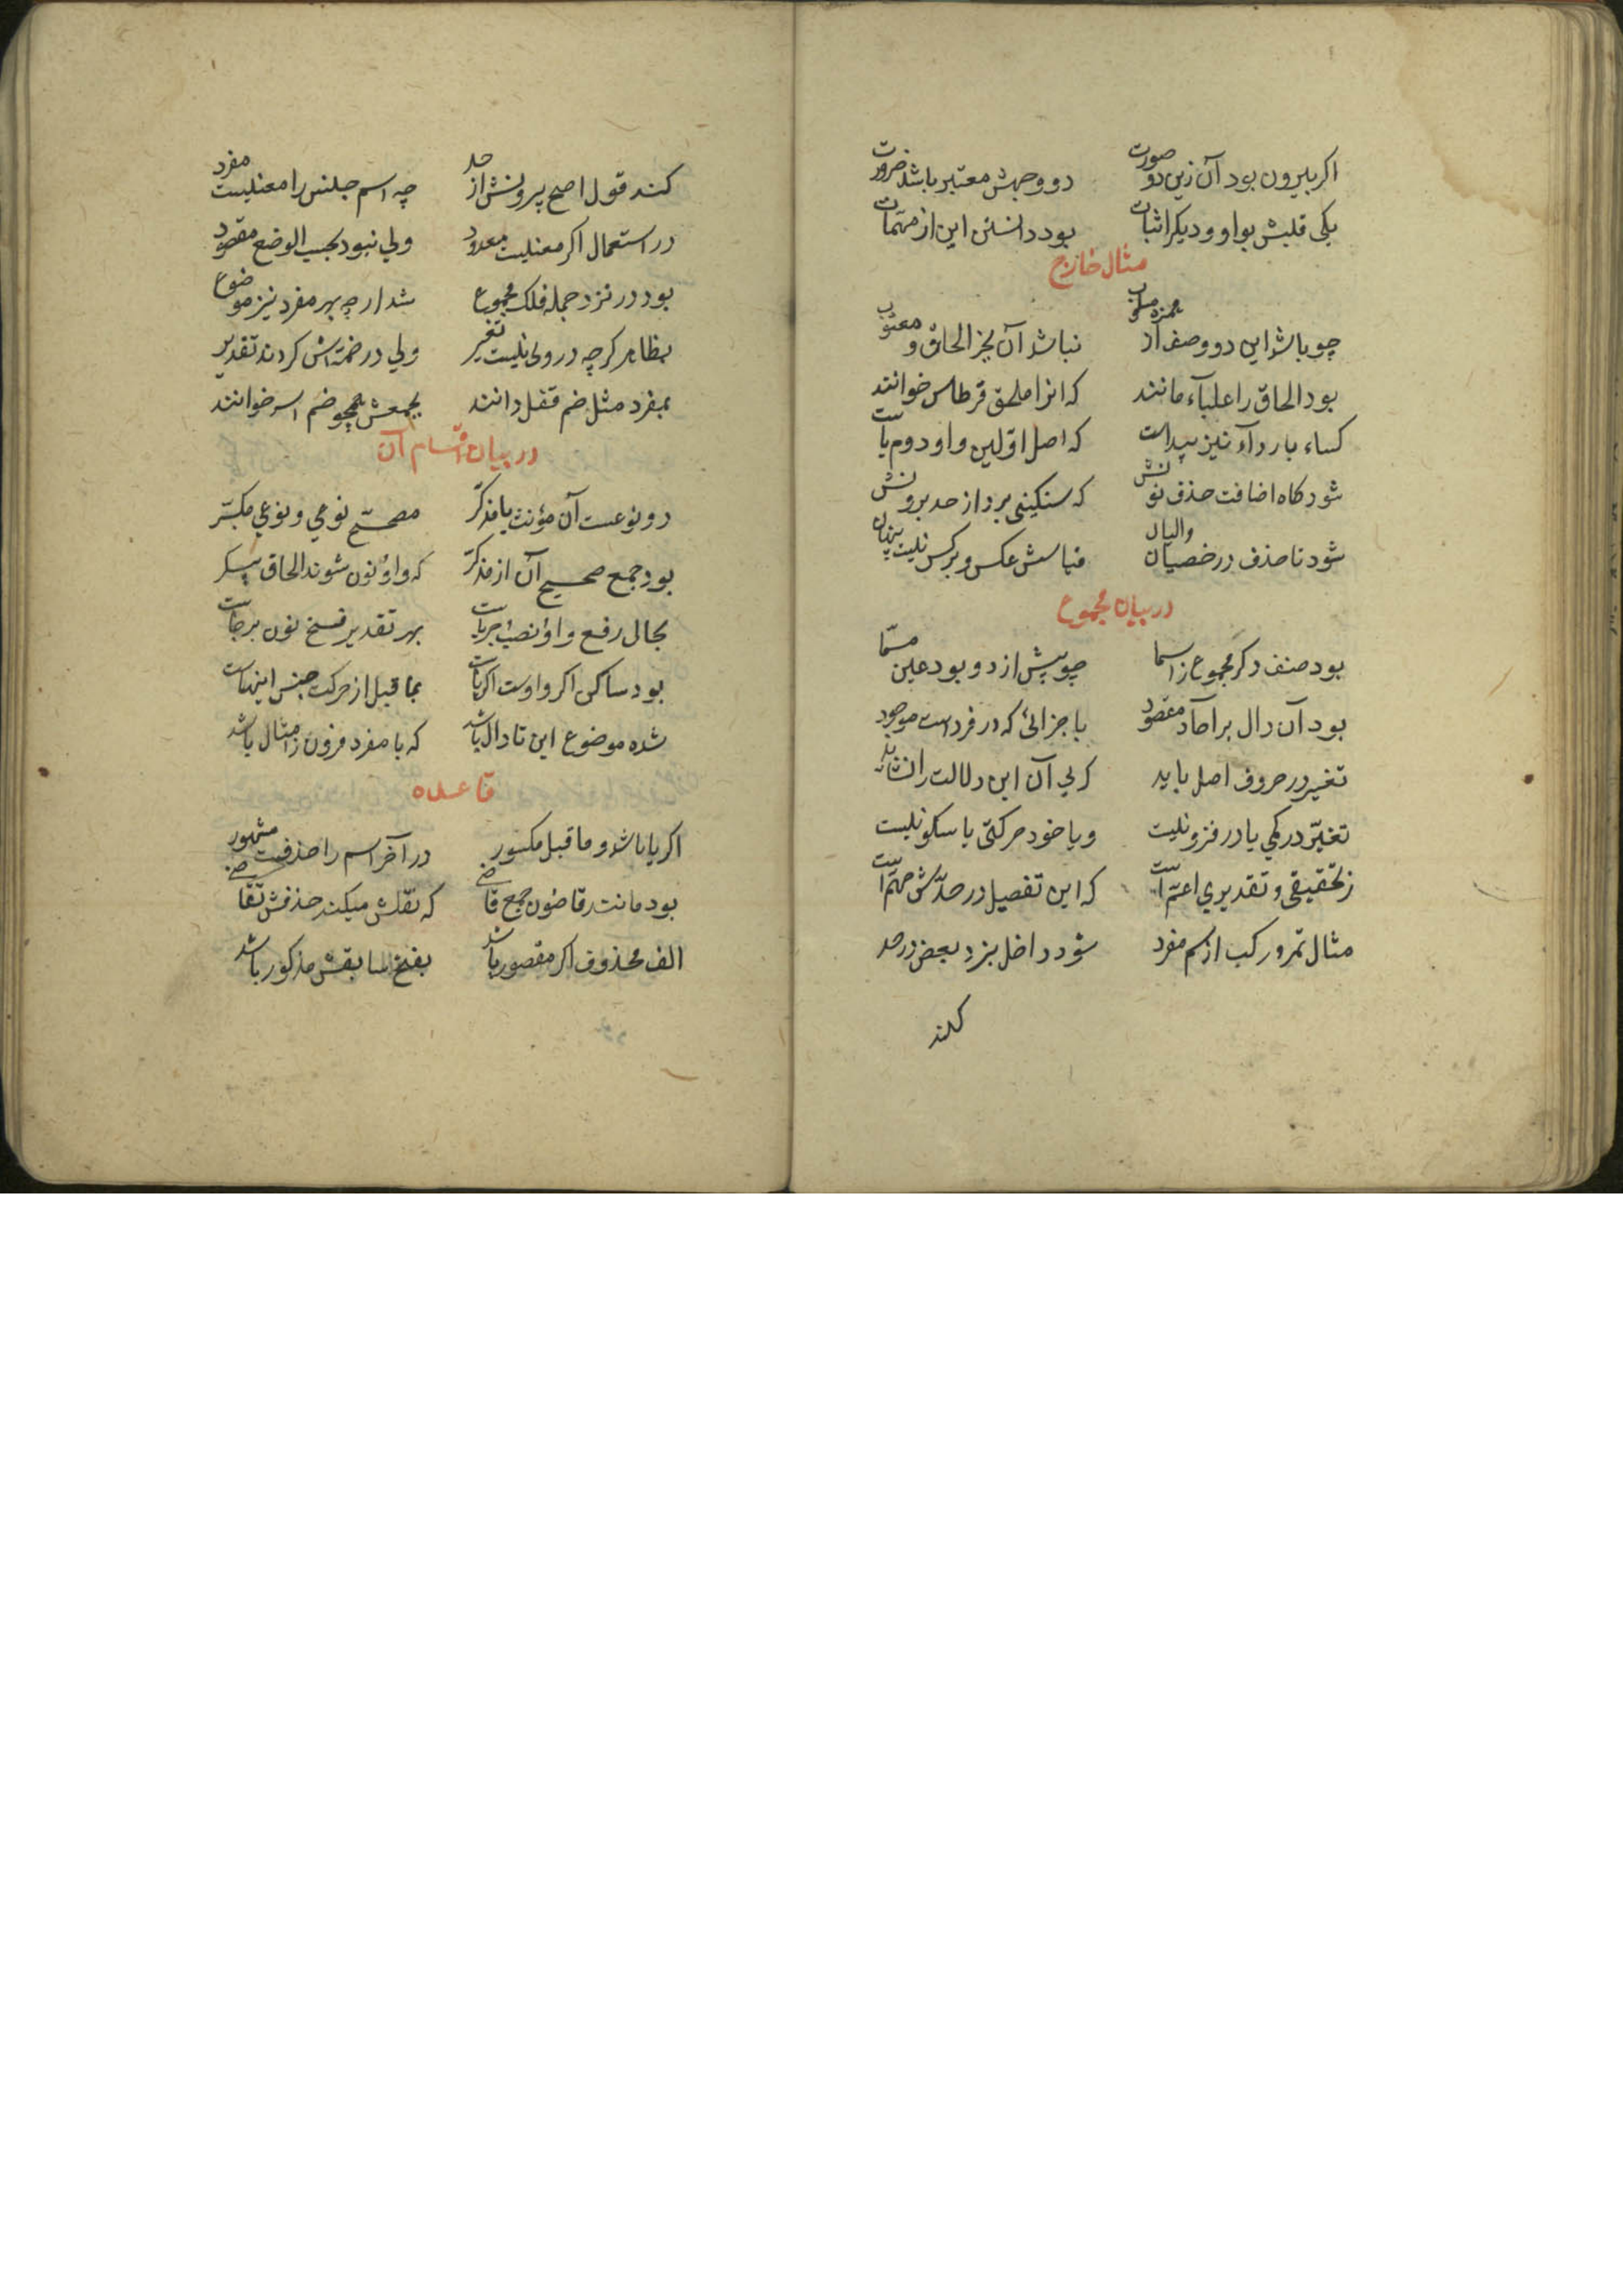 اکر بیرون بود آن زین دو صورت دو وجهش معتبر باشد ضرورت
یکی قلبش بواو و دیکر اثبات بود دانستن این از مهمات
مثال خارج
چو باشد این دو وصف از همزه مسلوب نباشد آن بجز الحاق و
بود الحاق را علبآء مانند که انرا ملحق قرطاس خوانند
کساء با ردآء نیز پیداست که اصل اولین واو دوم یاست
شود کاه اضافت حذف نونش که سنکینی برد از حد برونش
شود تا حذف در خصیان والیان قیاسش عکس و برکس نیست پنهان
در بیان مجموع
بود صنف دکر مجموع ز اسما چو بیش از دو بود عین مسما
بود آن دال بر آحاد مقصود باجزائی که در فردست موجود
تغییر در حروف اصل باید که بی آن این دلالت را نشاید
تغیر در کمی یا در فزونیست و یا خود حرکتی یا سکونیست
ز تحقیقی و تقدیری اعم است که این تفصیل در حدش مهم است
مثال تمر و رکب از اسم مفرد شود داخل بنزد بعض در حد
کند
کند قول اصح بیرونش از حد چه اسم جنس را معنیست مفرد
در استعمال اکر معنیست معدود ولی نبود بحسب الوضع مقصود
بود در نزد جمله فلک مجموع شد ار چه بهر مفرد نیز موضوع
بظاهر کرچه در وی نیست تغییر ولی در ضمه اش کردند تقدیر
بمفرد مثل ضم قفل دانند بجمعش همچو ضم اسد خوانند
در بیان اقسام آن
دو نوعست آن مؤنث یا مذکر مصحح نوعی و نوعی مکسر
بود جمع صحیح آن از مذکر که واو نون شوند الحاق پیکر
بحال رفع واو نصب جر یاست بهر تقدیر فتح نون برجاست
بود ساکن اکر واوست اکر یاست بماقبل از حرکت جنس اینهاست
شده موضوع این تا دال باشد که با مفرد فزون ز امثال باشد
قاعده
اکر یا باشد و ماقبل مکسور در آخر اسم را حذفست مشهور
بود مانند قاضون جمع قاضی که ثقلش میکند حذفش تقاضی
الف محذوف اکر مقصور باشد بفتح سابقش مذکور باشد